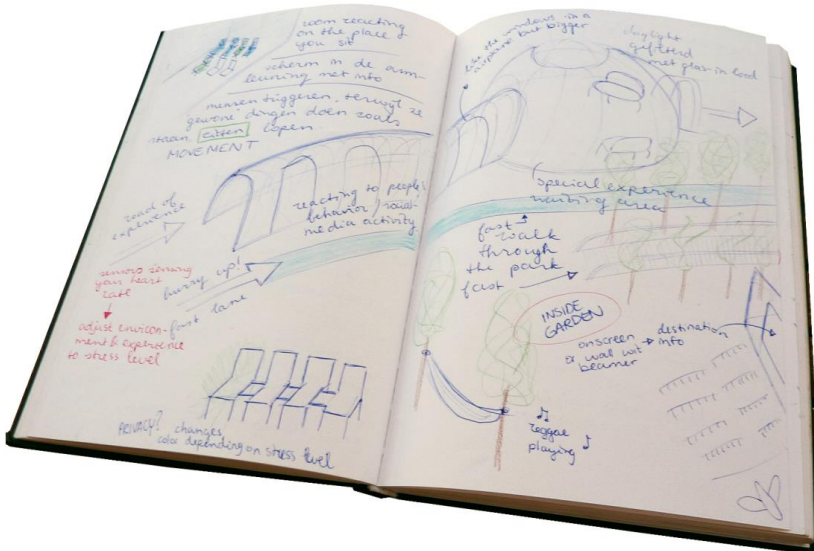 room reacting
on the place
you sit
scherm in de arm-
leuning met info
mensen triggeren, terwijl ze
gewone dingen doen zoals
staan zitten lopen
MOVEMENT
road of
experience
reacting to people's
behavior / social
media activity
hurry up!
fast lane
sensors sensing
your heart
rate
adjust environ-
ment & experience
to stress level
PRIVACY? changes
color depending on stress level
like the windows in a
airplane but bigger
daylight
gefilterd
met glas in lood
special experience
waiting area
fast
walk
through
the park
fast
INSIDE
GARDEN
onscreen → destination
or wal wit info
beamer
reggae
playing